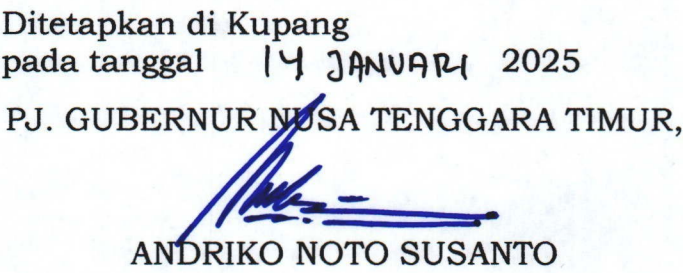 Ditetapkan di Kupang
pada tanggal 14 JANUARI 2025
PJ. GUBERNUR NUSA TENGGARA TIMUR,
ANDRIKO NOTO SUSANTO